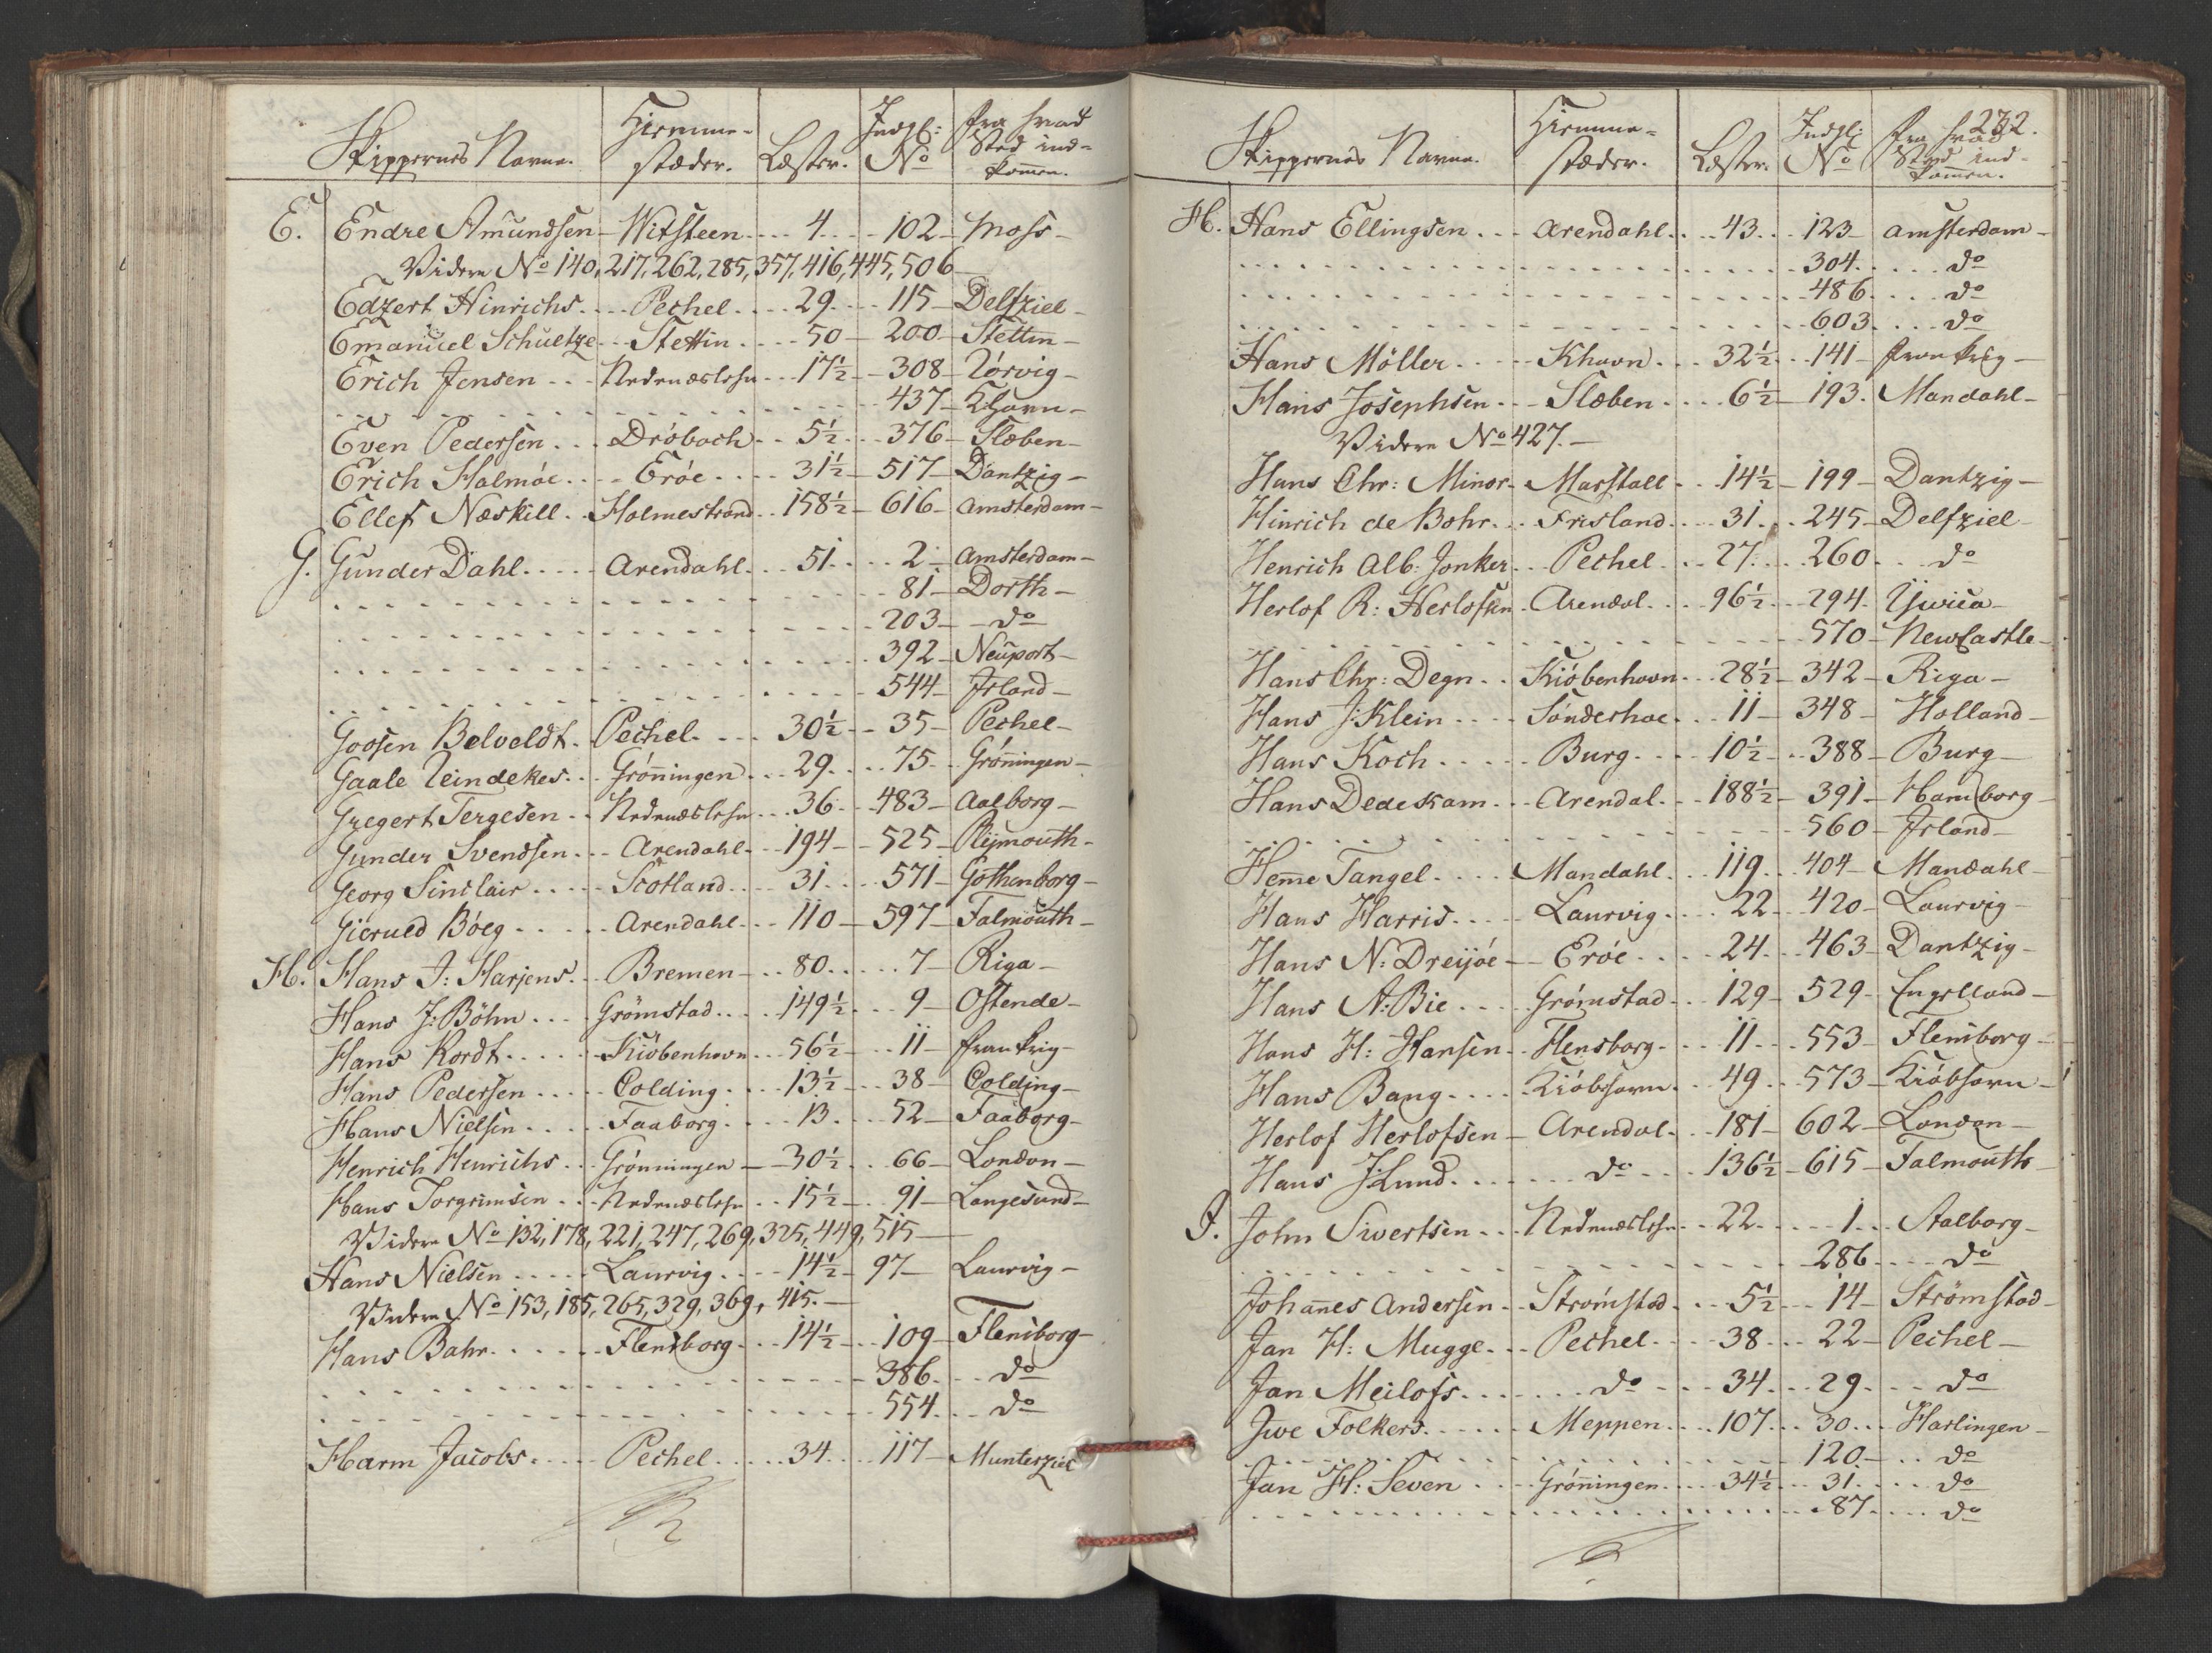 Skippernes Navne. Hiemme-stæder. Læster. Indgl: No fra hvad Sted ind-kommen.
E. Endre Amundsen Witsteen 4 102 Moss
Videre No 140, 217, 262, 285, 357, 416, 445, 506
Edzert Hinrichs Pechel 29 115 Delfziel
Emanuel Schultze Stettin 50 200 Stettin
Erich Jensen Nedenæslehn 17½ 308 Törvig
437 Khavn
Even Pedersen Dröbach 5½ 376 Flæben
Erich Halmöe Eröe 31½ 517 Dantzig
Ellef Næskill Holmestrand 158½ 616 Amsterdam
G. Gunder Dahl Arendahl 51 2 Amsterdam
81 Dorth
203 do
392 Neuport
544 Irland
Goosen Belveldt Pechel 30½ 35 Pechel
Gaale Reindekes Grönningen 29 75 Grönningen
Gregert Tergesen Nedenæslehn 36 483 Aalborg
Gunder Svendsen Arendahl 194 525 Pleymouth
Georg Sinclair Scotland 31 571 Gothenborg
Gierued Böeg Arendahl 110 597 Falmouth
H. Hans J: Harjens Bremen 80 7 Riga
Hans J: Böhm Grömstad 149½ 9 Ostende
Hans Kordt Kiöbenhavn 56½ 11 frankrig
Hans Pedersen Colding 13½ 38 Colding
Hans Nielsen Faaborg 13 52 Faaborg
Henrich Henrichs Grönningen 30½ 66 London
Hans Torgrimsen Nedenæslehn 15½ 91 Langesund
Videre No 132, 178, 221, 247, 269, 325, 449, 515
Hans Nielsen Laurvig 14½ 97 Laurvig
Videre No 153, 185, 265, 329, 369, 415.
Hans Bahr Flensborg 14½ 109 Flensborg
386 do
554 do
Harm Jacobs Pechel 34 117 Munterziel
232.
Skippernes Navne. Hiemme-stæder. Læster. Indgl: No fra hvad Sted ind-kommen.
H. Hans Ellingsen Arendahl 43 123 Amsterdam
304 do
486 do
603 do
Hans Möller Khavn 32½ 141 frankrig
Hans Josephsen Flæben 6½ 193 Mandahl
Videre No 427.
Hans Chr: Minor Marstall 14½ 199 Dantzig
Hinrich de Bohr Frisland 31 245 Delfziel
Henrich Alb: Jonker Pechel 27 260 do
Herlof R: Herlofsen Arendal 96½ 294 Yvica
570 NewCastle
Hans Chr: Degn Kiöbenhavn 28½ 342 Riga
Hans J: Klein Sönderhoe 11 348 Holland
Hans Koch Burg 10½ 388 Burg
Hans Dedekam Arendal 188½ 391 Hamborg
560 Irland
Hemme Tangel Mandahl 119 404 Mandahl
Hans Harris Laurvig 22 420 Laurvig
Hans N: Dreijöe Eröe 24 463 Dantzig
Hans A: Bie Grömstad 129 529 Engelland
Hans H: Hansen Flensborg 11 553 Flensborg
Hans Bang Kiöbhavn 49 573 Kiöbhavn
Herlof Herlofsen Arendal 181 602 London
Hans J: Lund do 136½ 615 Falmouth
J. John Sivertsen Nedenæslehn 22 1 Aalborg
286 do
Johannes Andersen Strömstad 5½ 14 Strömstad
Jan H: Mugge Pechel 38 22 Pechel
Jan Meilofs do 34 29 do
Jwe Folkers Meppen 107 30 Harlingen
120 do
Jan H: Seven Grönningen 34½ 31 do
87 do